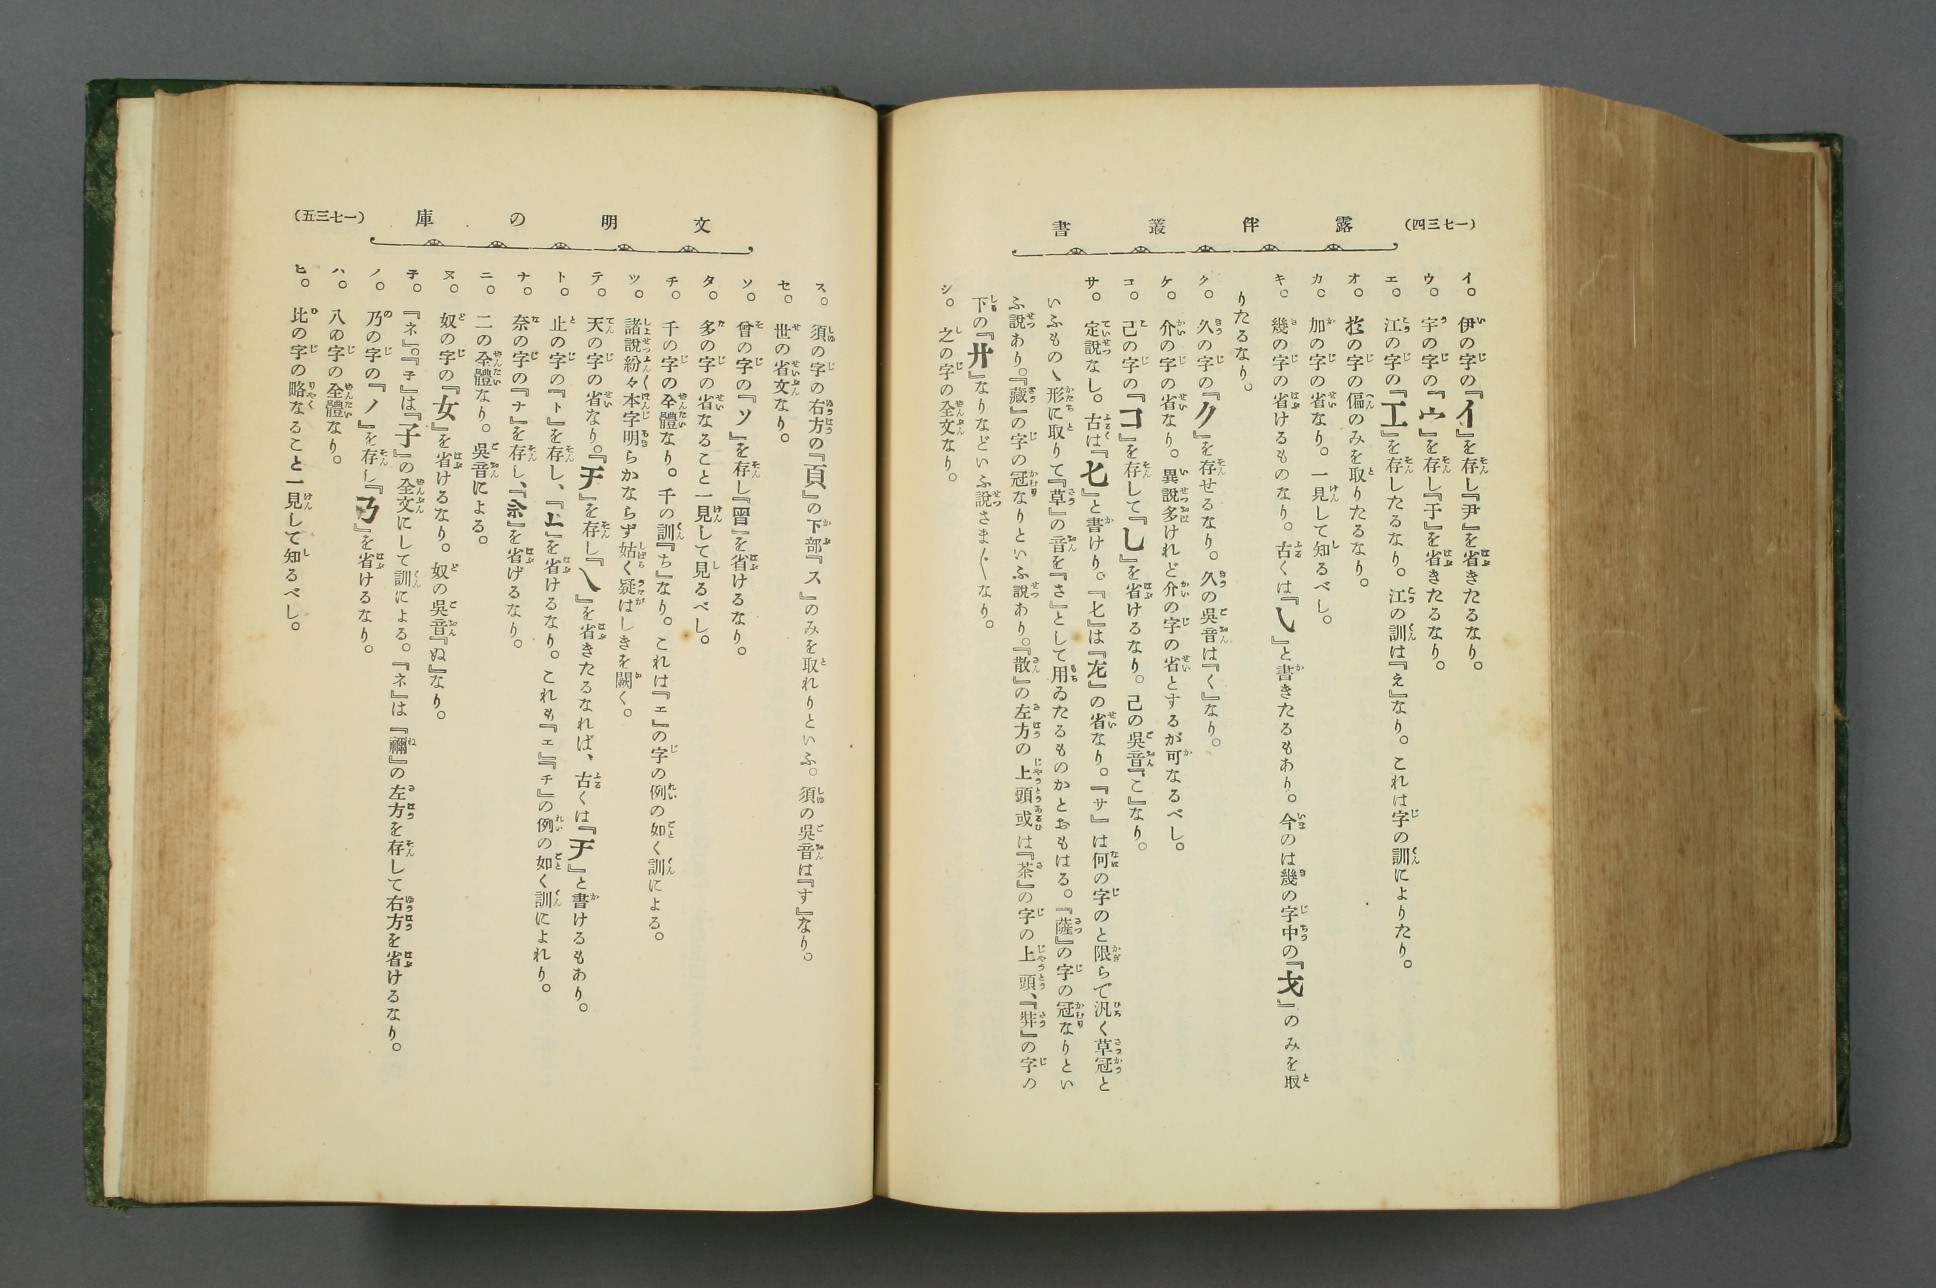 (一七三四)
露伴叢書
イ。伊の字の『イ』を存し『尹』を省きたるなり。
ウ。宇の字の『宀』を存し『于』を省きたるなり。
エ。江の字の『工』を存したるなり。江の訓は『え』なり。これは字の訓によりたり。
オ。於の字の偏のみを取りたるなり。
カ。加の字の省なり。一見して知るべし。
キ。幾の字の省けるものなり。古くは『㇂』と書きたるもあり。今のは幾の字中の『戈』のみを取
りたるなり。
ク。久の字の『ク』を存せるなり。久の吳音は『く』なり。
ケ。介の字の省なり。異說多けれど介の字の省とするが可なるべし。
コ。己の字の『コ』を存して『乚』を省けるなり。己の吳音『こ』なり。
サ。定說なし。古は『七』と書けり。『七』は『左』の省なり。『サ』は何の字のと限らで汎く草冠と
いふものゝ形に取りて『草』の音を『さ』として用ゐたるものかとおもはる。『薩』の字の冠なりとい
ふ說あり。『藏』の字の冠なりといふ說あり。『散』の左方の上頭或は『茶』の字の上頭、『弉』の字の
下の『廾』なりなどいふ說さま〴〵なり。
シ。之の字の全文なり。
文明の庫
(一七三五)
ス。須の字の右方の『頁』の下部『ス』のみを取れりといふ。須の吳音は『す』なり。
セ。世の省文なり。
ソ。曾の字の『ソ』を存し『曾』を省けるなり。
タ。多の字の省なること一見して見るべし。
チ。千の字の全體なり。千の訓『ち』なり。これは『エ』の字の例の如く訓による。
ツ。諸說紛々本字明らかならず姑く疑はしきを闕く。
テ。天の字の省なり。『チ』を存し『乀』を省きたるなれば、古くは『チ』と書けるもあり。
ト。止の字の『ト』を存し、『丄』を省けるなり。これも『エ』『チ』の例の如く訓によれり。
ナ。奈の字の『ナ』を存し、『佘』を省けるなり。
ニ。二の全體なり。吳音による。
ヌ。奴の字の『女』を省けるなり。奴の吳音『ぬ』なり。
子。『ネ』。『子』は『子』の全文にして訓による。『ネ』は『禰』の左方を存して右方を省けるなり。
ノ。乃の字の『ノ』を存し『㇋』を省けるなり。
ハ。八の字の全體なり。
ヒ。比の字の略なること一見して知るべし。